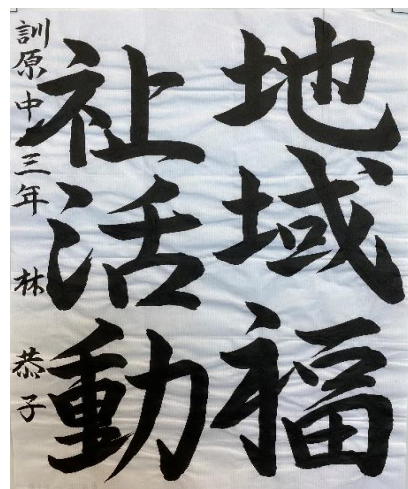 地域福
祉活動
訓原中三年 林 恭子